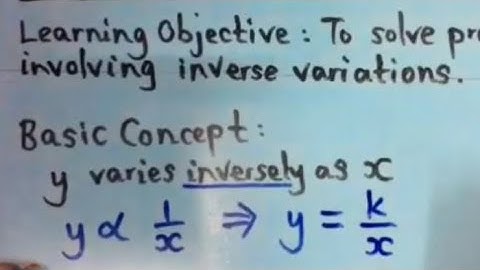 Learning Objective : To solve
involving inverse variations.
Basic Concept :
y varies inversely as x
y ∝ 1/x ⇒ y = k/x